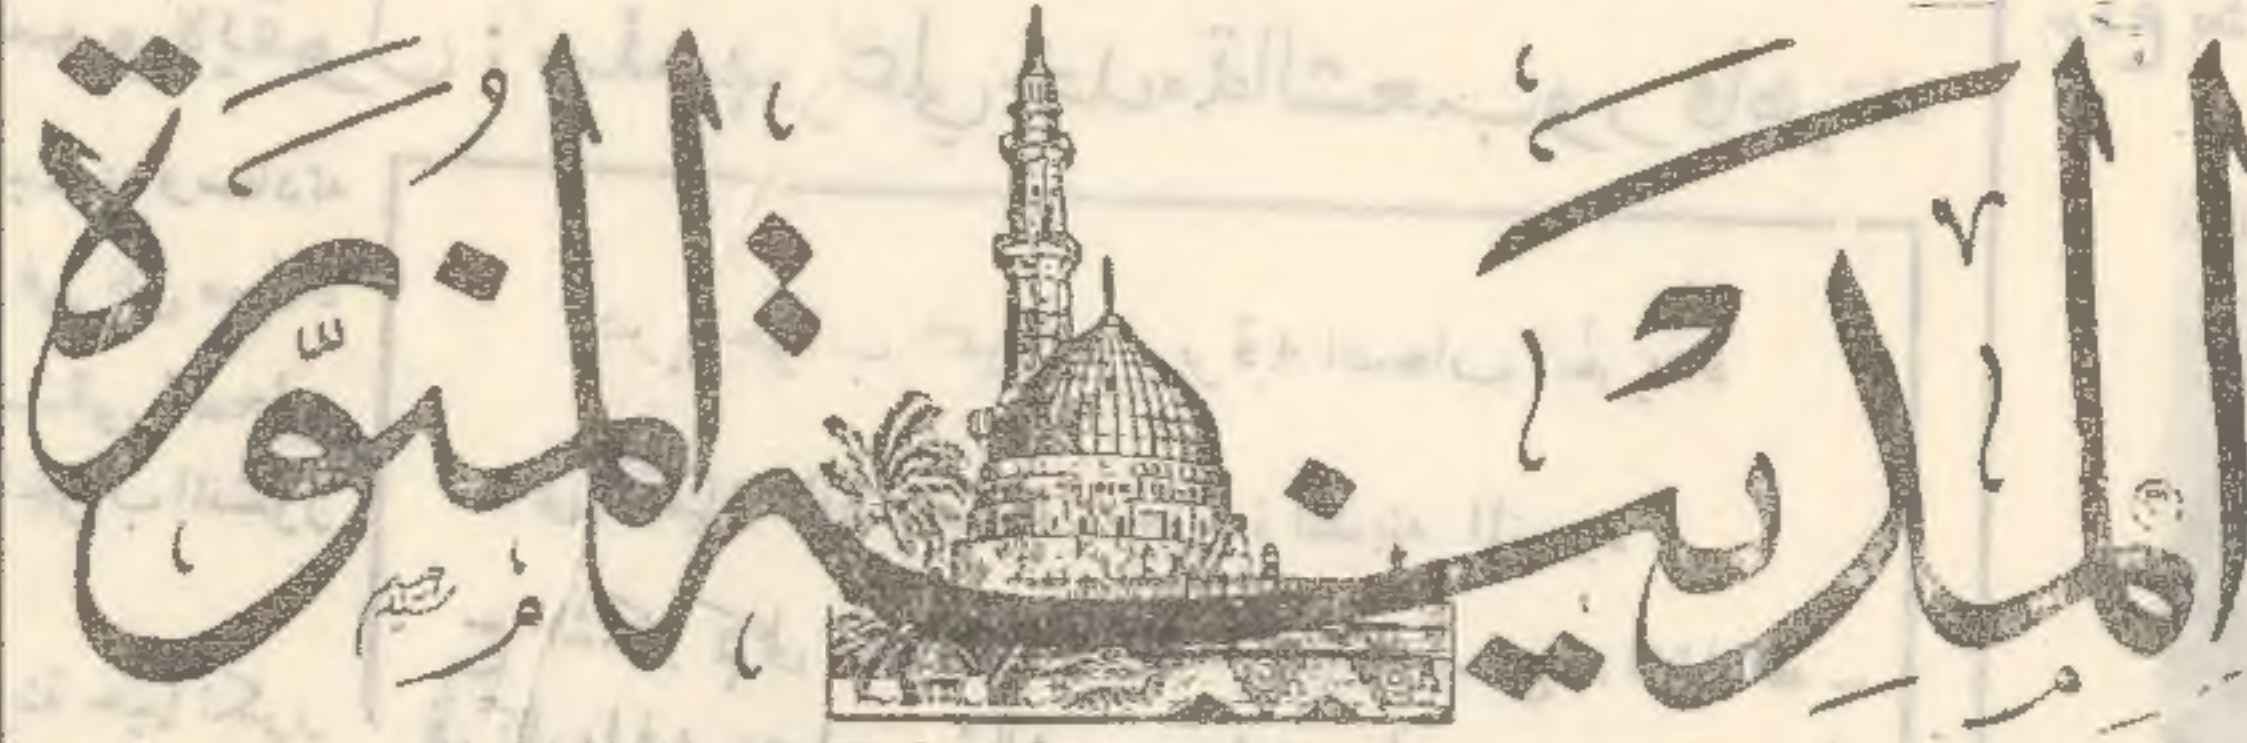 المدينة المنورة